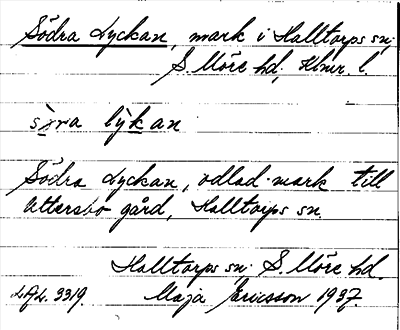 Södra Lyckan, mark i Halltorps sn;
S. Möre hd; Klmr. l.
sɤra lỳkan
Södra Lyckan, odlad mark till
Attersbo gård, Halltorps sn.
Halltorps sn; S. Möre hd.
LAL. 3319. Maja Ericsson 1937.